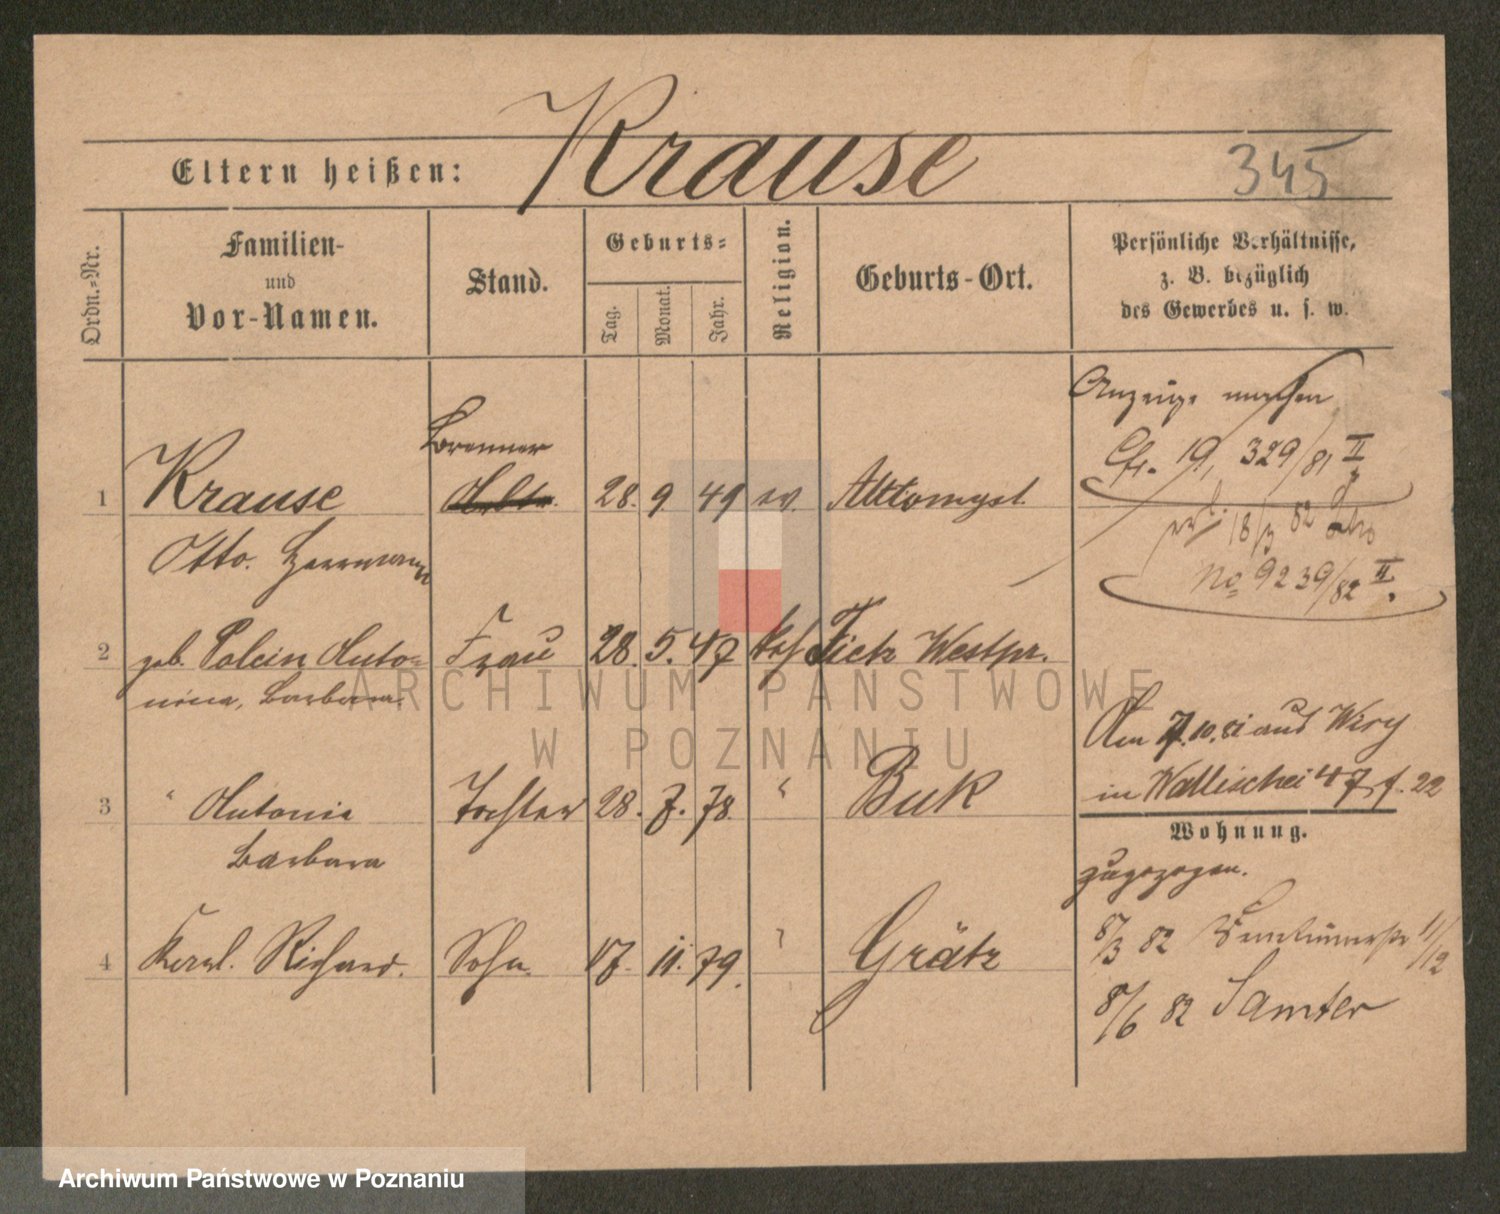 Krause
345
Eltern heißen:
Ordn.-Nr.
Familien-
und
Vor-Namen.
Stand.
Geburts-
Tag.
Monat.
Jahr.
Religion.
Geburts-Ort.
Persönliche Verhältnisse,
z. B. bezüglich
des Gewerbes u. s. w.
Anzeige machen
Cfr. 19, 329/81 II
Brenner
1 Krause 28. 9 49 ev. Alttomysl.
Otto. Herrmann
18/3 82
No 9239/82 II.
2 geb. Polcin Anto-
nina, Barbara. Frau 28. 5. 47 kath Tietz Westpr.
3 " Antonie Tochter 28. 7. 78. " Buk
Barbara
Am 7.10.81 aus Wiry
in Wallischei 47 f. 22
Wohnung.
zugezogen.
4 Karl. Richard. Sohn. 17. 11. 79. " Grätz
8/3 82 11/12
8/6 82 Samter
ARCHIWUM PAŃSTWOWE
W POZNANIU
Archiwum Państwowe w Poznaniu